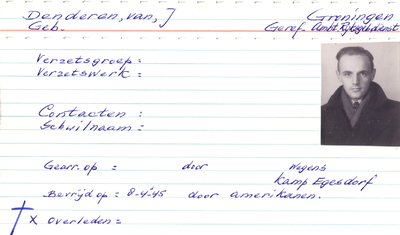 Denderen, van, J Groningen
Geb. Geref. Ambt. Rijksgebdienst
Verzetsgroep :
Verzetswerk :
Contacten :
Schuilnaam :
Gearr. op = door Wegens
Kamp Egesdorf
Bevrijd op = 8-4-45 door amerikanen.
X Overleden =